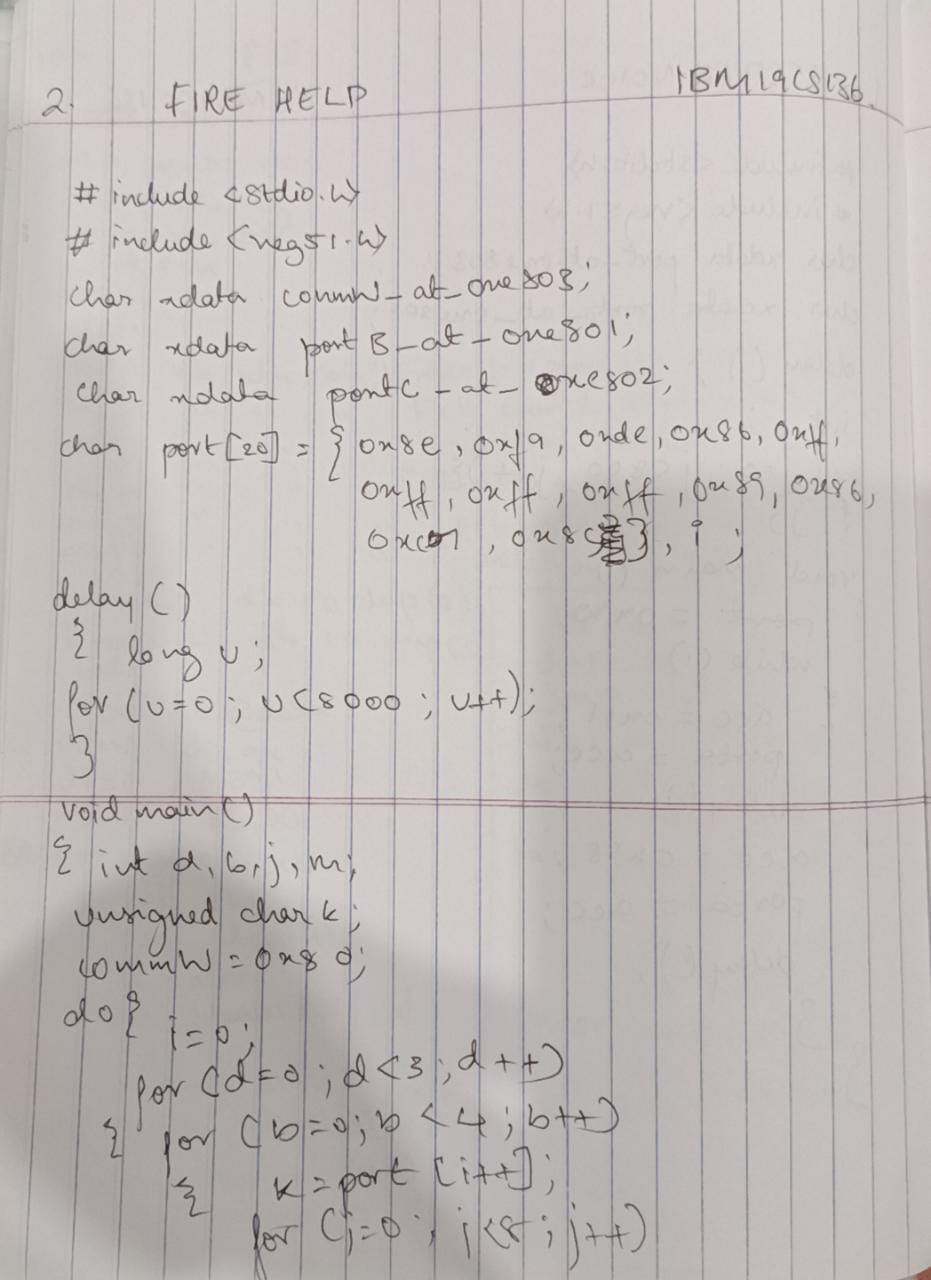 2. FIRE HELP 1BM19CS136
# include <stdio.h>
# include <reg51.h>
char xdata commW_at_oxe803;
char xdata port B_at_oxe801;
char xdata portC_at_oxe802;
char port[20] = { 0x8e, 0xf9, 0xde, 0x86, 0xff,
0xff, 0xff, 0xff, 0x89, 0x86,
0xc7, 0x8c}, i ;
delay ()
{ long u;
for (u=0; u<8000; u++);
}
void main()
{ int d, b, j, m;
unsigned char k;
commW = 0x80;
do{
i=0;
for (d=0; d<3; d++)
{ for (b=0; b<4; b++)
{ k = port [i++];
for (j=0; j<8; j++)